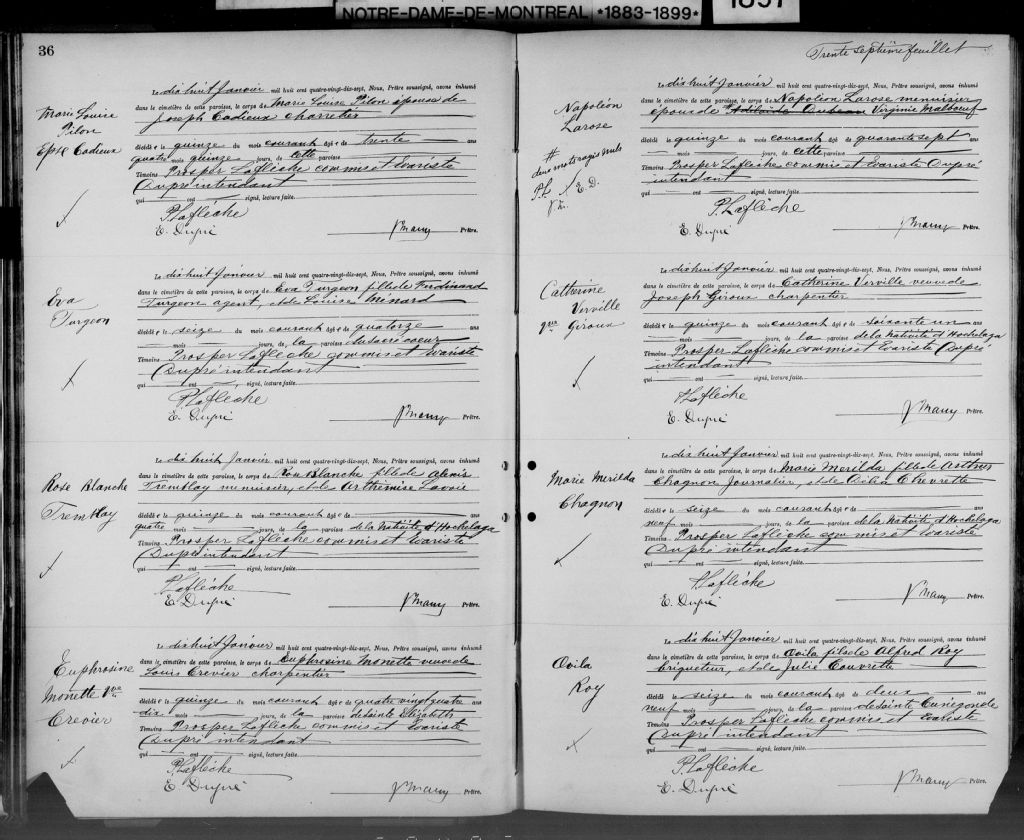 NOTRE-DAME-DE-MONTREAL *1883-1899*
1897
36
Marie Louise
Pilon
Epse Cadieux
Le dix huit Janvier mil huit cent quatre-vingt-dix-sept, Nous, Prêtre soussigné, avons inhumé
dans le cimetière de cette paroisse, le corps de Marie Louise Pilon épouse de
Joseph Cadieux charretier
décédée le quinze du mois courant âgée de trente ans
quatre mois quinze jours, de cette paroisse
Témoins Prosper Laflèche commis et Evariste
Dupré intendant
qui ont signé, lecture faite.
P. Laflèche
E. Dupré
Prêtre.
Eva
Turgeon
Le dix huit Janvier mil huit cent quatre-vingt-dix-sept, Nous, Prêtre soussigné, avons inhumé
dans le cimetière de cette paroisse, le corps de Eva Turgeon fille de Ferdinand
Turgeon agent, et de Louise Ménard
décédée le seize du mois courant âgée de quatorze ans
mois jours, de la paroisse du sacré coeur
Témoins Prosper Laflèche commis et Evariste
Dupré intendant
qui ont signé, lecture faite.
P. Laflèche
E. Dupré
Prêtre.
Rose Blanche
Tremblay
Le dix huit Janvier mil huit cent quatre-vingt-dix-sept, Nous, Prêtre soussigné, avons inhumé
dans le cimetière de cette paroisse, le corps de Rose Blanche fille de Alexis
Tremblay menuisier, et de Arthémise Lavoie
décédée le quinze du mois courant âgée de ans
quatre mois jours, de la paroisse de la Nativité d'Hochelaga
Témoins Prosper Laflèche commis et Evariste
Dupré intendant
qui ont signé, lecture faite.
P. Laflèche
E. Dupré
Prêtre.
Euphrosine
Monette Vve
Crevier
Le dix huit Janvier mil huit cent quatre-vingt-dix-sept, Nous, Prêtre soussigné, avons inhumé
dans le cimetière de cette paroisse, le corps de Euphrosine Monette veuve de
Louis Crevier charpentier
décédée le quinze du mois courant âgée de quatre vingt quatre ans
dix mois jours, de la paroisse de Sainte Elizabeth
Témoins Prosper Laflèche commis et Evariste
Dupré intendant
qui ont signé, lecture faite.
P. Laflèche
E. Dupré
Prêtre.
Trente septième feuillet
Napoléon
Larose
#
deux mots rayés nuls
P.L. E.D.
Le dix huit Janvier mil huit cent quatre-vingt-dix-sept, Nous, Prêtre soussigné, avons inhumé
dans le cimetière de cette paroisse, le corps de Napoléon Larose menuisier
époux de Virginie Malboeuf
décédé le quinze du mois courant âgé de quarante sept ans
mois jours, de cette paroisse
Témoins Prosper Laflèche commis et Evariste Dupré
intendant
qui ont signé, lecture faite.
P. Laflèche
E. Dupré
Prêtre.
Catherine
Verville
Vve
Giroux
Le dix huit Janvier mil huit cent quatre-vingt-dix-sept, Nous, Prêtre soussigné, avons inhumé
dans le cimetière de cette paroisse, le corps de Catherine Verville veuve de
Joseph Giroux charpentier
décédée le quinze du mois courant âgée de soixante un ans
mois jours, de la paroisse de la Nativité d'Hochelaga
Témoins Prosper Laflèche commis et Evariste Dupré
intendant
qui ont signé, lecture faite.
P. Laflèche
E. Dupré
Prêtre.
Marie Merilda
Chagnon
Le dix huit Janvier mil huit cent quatre-vingt-dix-sept, Nous, Prêtre soussigné, avons inhumé
dans le cimetière de cette paroisse, le corps de Marie Merilda fille de Arthur
Chagnon Journalier, et de Chevrette
décédée le seize du mois courant âgée de ans
neuf mois jours, de la paroisse de la Nativité d'Hochelaga
Témoins Prosper Laflèche commis et Evariste
Dupré intendant
qui ont signé, lecture faite.
P. Laflèche
E. Dupré
Prêtre.
Ovila
Roy
Le dix huit Janvier mil huit cent quatre-vingt-dix-sept, Nous, Prêtre soussigné, avons inhumé
dans le cimetière de cette paroisse, le corps de Ovila fils de Alfred Roy
briqueteur, et de Julie Couvrette
décédé le seize du mois courant âgé de deux ans
neuf mois jours, de la paroisse de Sainte Cunégonde
Témoins Prosper Laflèche commis et Evariste
Dupré intendant
qui ont signé, lecture faite.
P. Laflèche
E. Dupré
Prêtre.